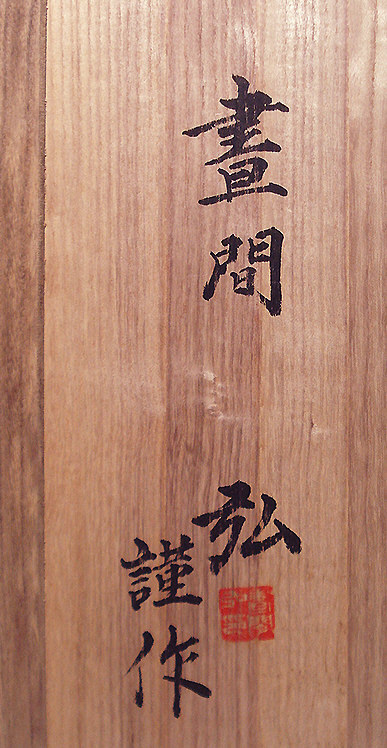 晝間 弘
謹作